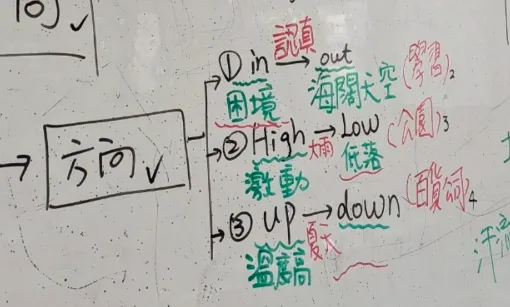 向✓
① in 認真→ out
困境 海闊天空 (學習)2
→ 方向✓
→② High 大雨→ Low (公園)3
激動 低落
→③ up → down (百貨公司)4
溫度高 夏天